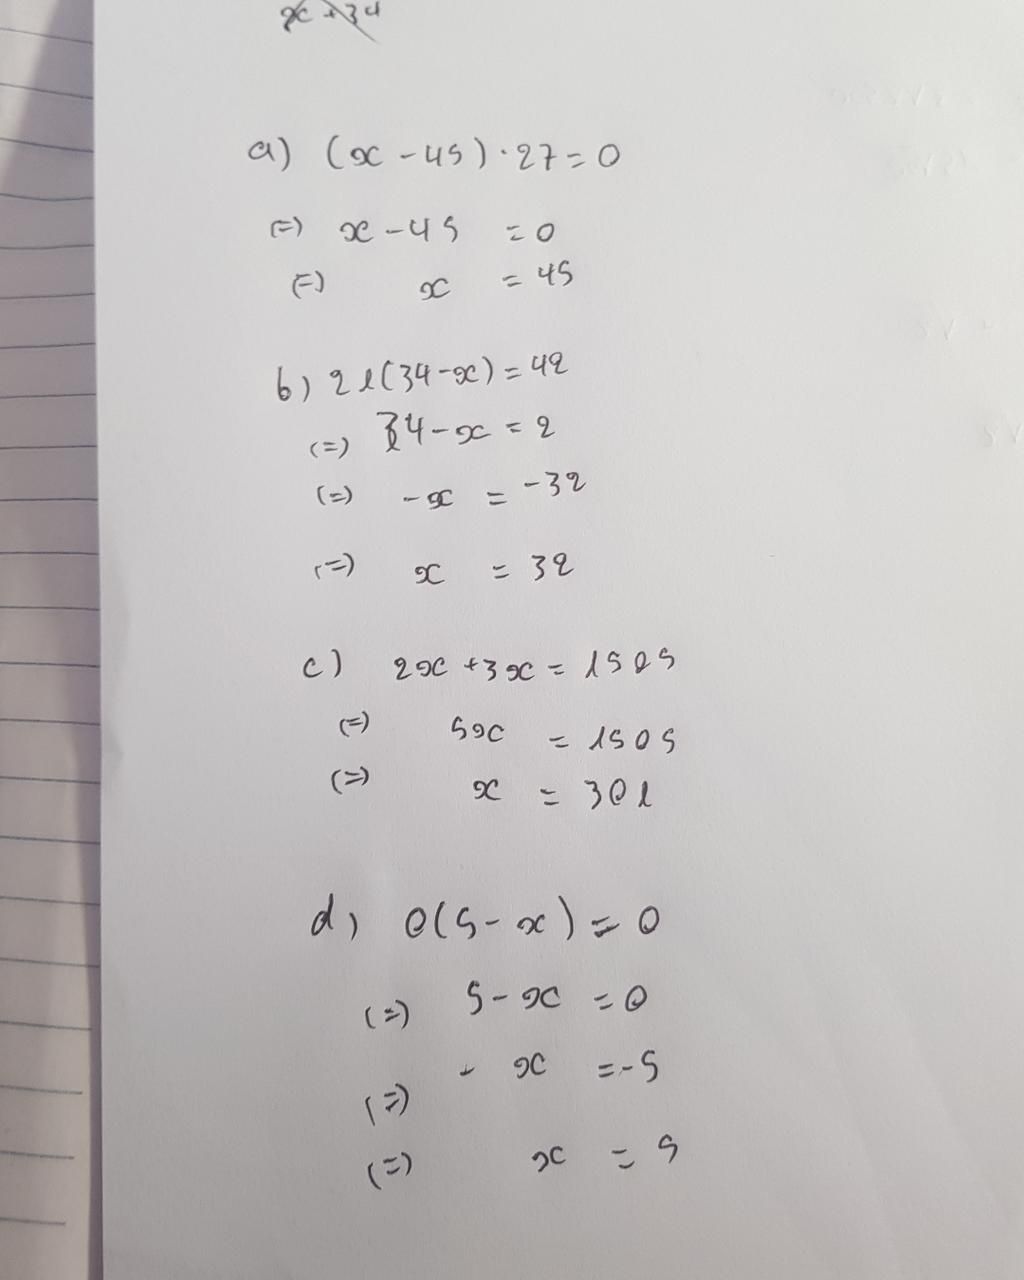 x + 34
a) (x - 45) · 27 = 0
(=) x - 45 = 0
(=) x = 45
b) 21(34-x) = 42
(=) 34 - x = 2
(=) -x = -32
(=) x = 32
c) 2x + 3x = 1505
(=) 5x = 1505
(=) x = 301
d) 0(5 - x) = 0
(=) 5 - x = 0
(=) - x = -5
(=) x = 5